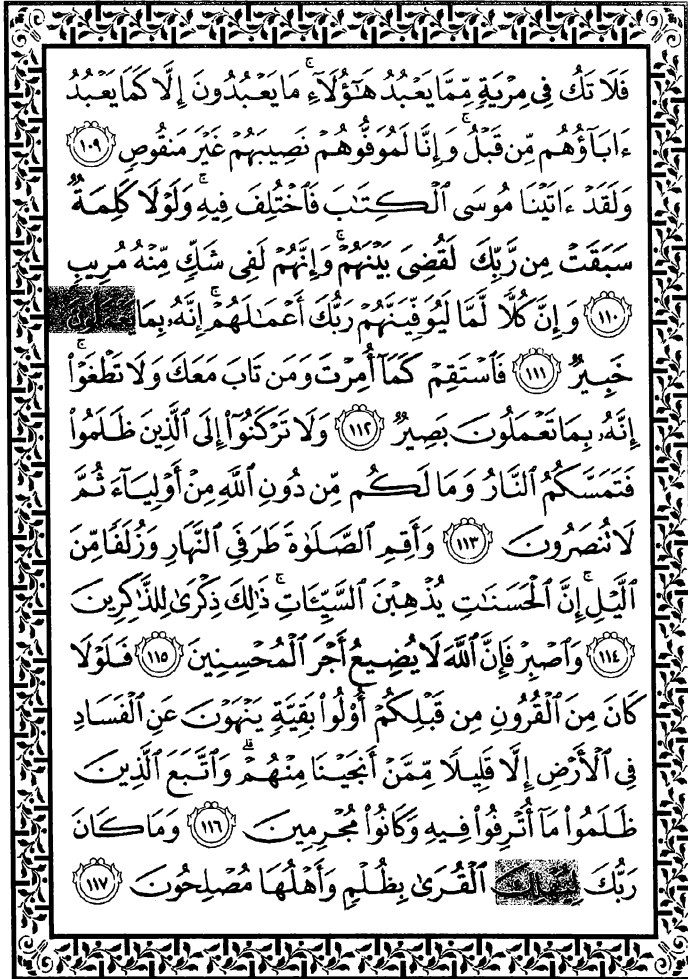 فَلَا تَكُ فِى مِرْيَةٍ مِّمَّا يَعْبُدُ هَٰٓؤُلَآءِ ۚ مَا يَعْبُدُونَ إِلَّا كَمَا يَعْبُدُ
ءَابَآؤُهُم مِّن قَبْلُ ۚ وَإِنَّا لَمُوَفُّوهُمْ نَصِيبَهُمْ غَيْرَ مَنقُوصٍ ۝١٠٩
وَلَقَدْ ءَاتَيْنَا مُوسَى ٱلْكِتَٰبَ فَٱخْتُلِفَ فِيهِ ۚ وَلَوْلَا كَلِمَةٌ
سَبَقَتْ مِن رَّبِّكَ لَقُضِىَ بَيْنَهُمْ ۚ وَإِنَّهُمْ لَفِى شَكٍّ مِّنْهُ مُرِيبٍ
۝١١٠ وَإِنَّ كُلًّا لَّمَّا لَيُوَفِّيَنَّهُمْ رَبُّكَ أَعْمَٰلَهُمْ ۚ إِنَّهُۥ بِمَا
خَبِيرٌ ۝١١١ فَٱسْتَقِمْ كَمَآ أُمِرْتَ وَمَن تَابَ مَعَكَ وَلَا تَطْغَوْا۟ ۚ
إِنَّهُۥ بِمَا تَعْمَلُونَ بَصِيرٌ ۝١١٢ وَلَا تَرْكَنُوٓا۟ إِلَى ٱلَّذِينَ ظَلَمُوا۟
فَتَمَسَّكُمُ ٱلنَّارُ وَمَا لَكُم مِّن دُونِ ٱللَّهِ مِنْ أَوْلِيَآءَ ثُمَّ
لَا تُنصَرُونَ ۝١١٣ وَأَقِمِ ٱلصَّلَوٰةَ طَرَفَىِ ٱلنَّهَارِ وَزُلَفًا مِّنَ
ٱلَّيْلِ ۚ إِنَّ ٱلْحَسَنَٰتِ يُذْهِبْنَ ٱلسَّيِّـَٔاتِ ۚ ذَٰلِكَ ذِكْرَىٰ لِلذَّٰكِرِينَ
۝١١٤ وَٱصْبِرْ فَإِنَّ ٱللَّهَ لَا يُضِيعُ أَجْرَ ٱلْمُحْسِنِينَ ۝١١٥ فَلَوْلَا
كَانَ مِنَ ٱلْقُرُونِ مِن قَبْلِكُمْ أُو۟لُوا۟ بَقِيَّةٍ يَنْهَوْنَ عَنِ ٱلْفَسَادِ
فِى ٱلْأَرْضِ إِلَّا قَلِيلًا مِّمَّنْ أَنجَيْنَا مِنْهُمْ ۗ وَٱتَّبَعَ ٱلَّذِينَ
ظَلَمُوا۟ مَآ أُتْرِفُوا۟ فِيهِ وَكَانُوا۟ مُجْرِمِينَ ۝١١٦ وَمَا كَانَ
رَبُّكَ ٱلْقُرَىٰ بِظُلْمٍ وَأَهْلُهَا مُصْلِحُونَ ۝١١٧